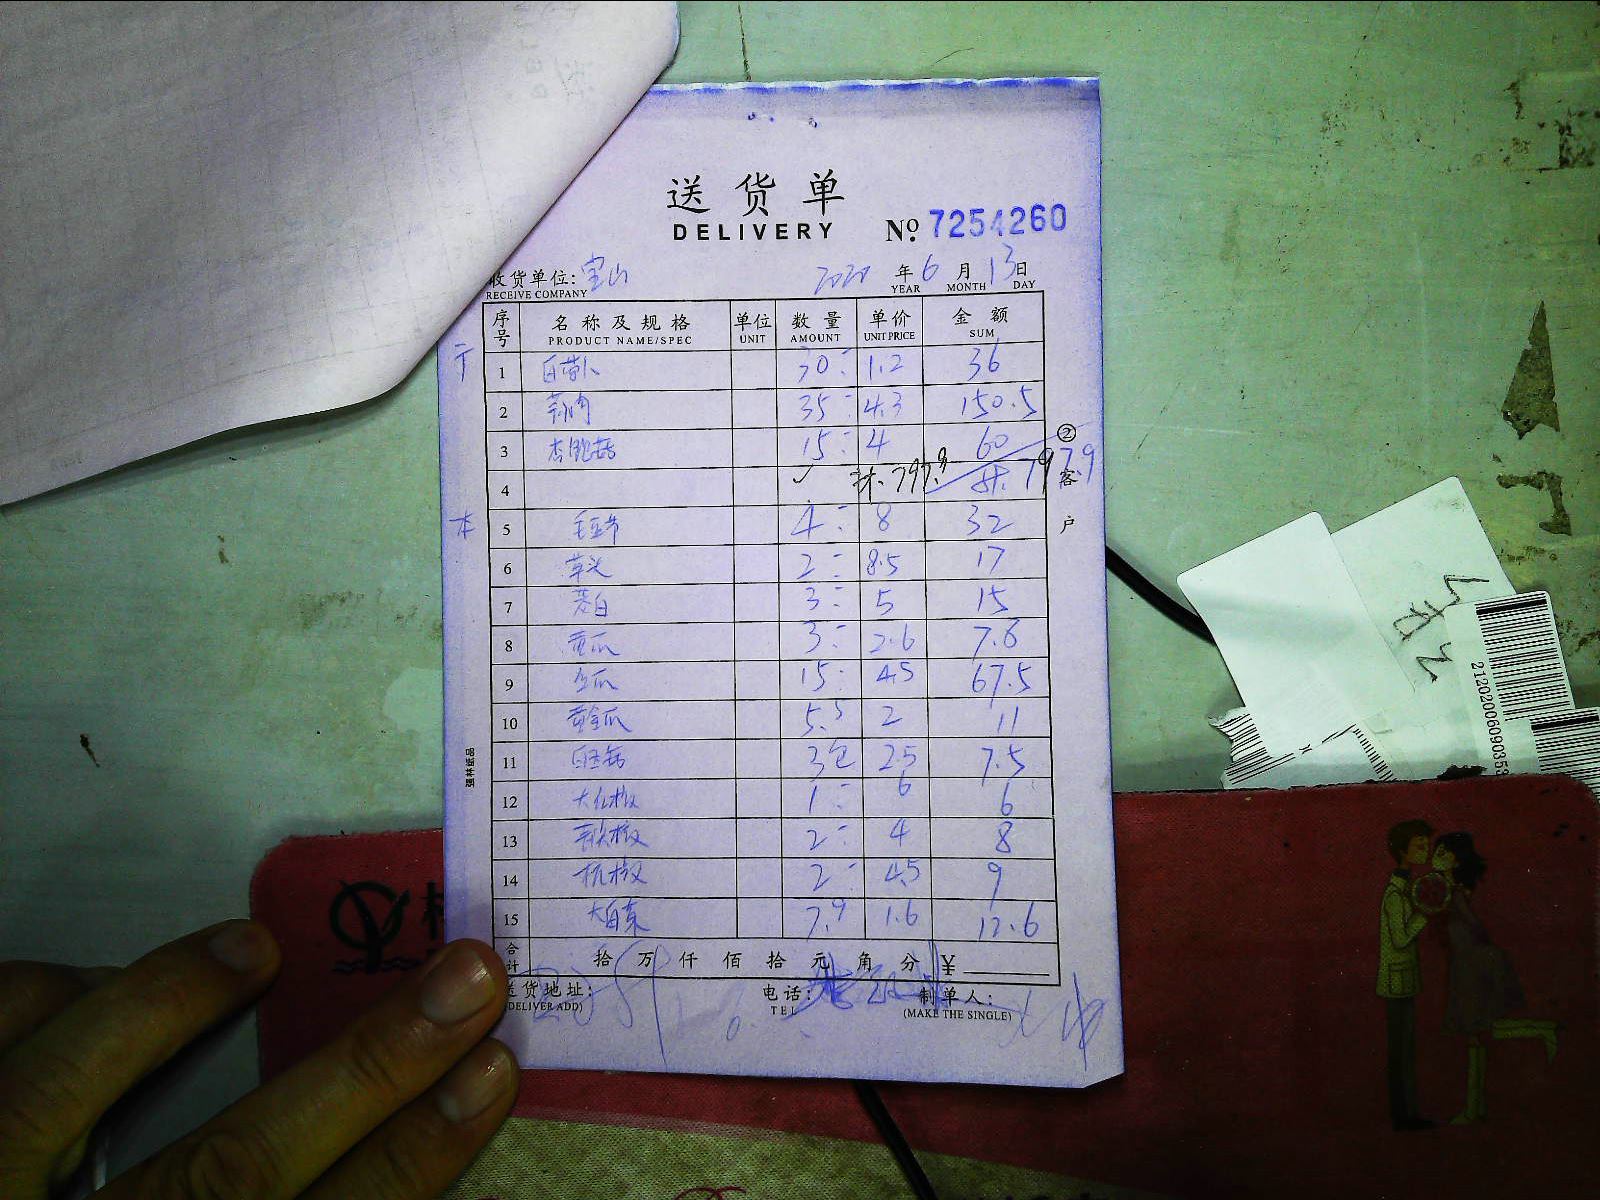 送货单
DELIVERY
№ 7254260
收货单位: 宝山 2020 年 6 月 13 日
RECEIVE COMPANY YEAR MONTH DAY
序号 名称及规格 单位 数量 单价 金额
PRODUCT NAME/SPEC UNIT AMOUNT UNIT PRICE SUM
1 白萝卜 30 1.2 36
2 35 4.3 150.5
3 杏鲍菇 15 4 60
4 ✓ 797.9 797.9
5 毛豆节 4 8 32
6 草头 2 8.5 17
7 茭白 3 5 15
8 黄瓜 3 2.6 7.8
9 冬瓜 15 4.5 67.5
10 黄金瓜 5.5 2 11
11 白玉菇 3包 2.5 7.5
12 大红椒 1 6 6
13 2 4 8
14 杭椒 2 4.5 9
15 大白菜 7.9 1.6 12.6
合计 拾 万 仟 佰 拾 元 角 分 ¥
送货地址: 电话: 制单人:
(DELIVER ADD) TEL (MAKE THE SINGLE)
② 客户
强林纸品
本